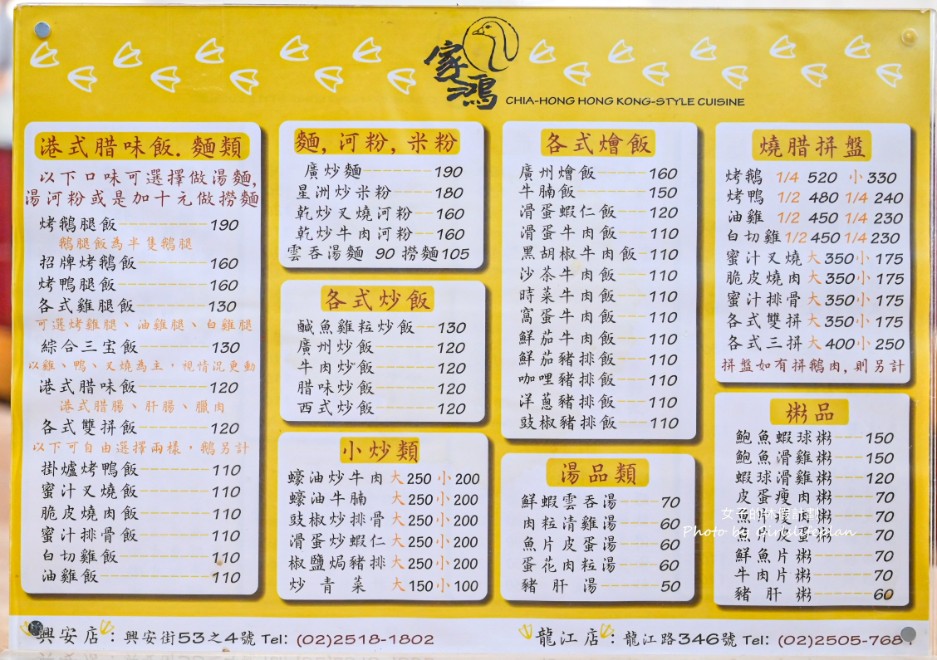 家鴻
CHIA-HONG HONG KONG-STYLE CUISINE
港式腊味飯.麵類
以下口味可選擇做湯麵,
湯河粉或是加十元做撈麵
烤鵝腿飯 190
鵝腿飯為半隻鵝腿
招牌烤鵝飯 160
烤鴨腿飯 160
各式雞腿飯 130
可選烤雞腿、油雞腿、白雞腿
綜合三宝飯 130
以雞、鴨、叉燒為主，視情況更動
港式腊味飯 120
港式腊腸、肝腸、臘肉
各式雙拼飯 120
以下可自由選擇兩樣，鵝另計
掛爐烤鴨飯 110
蜜汁叉燒飯 110
脆皮燒肉飯 110
蜜汁排骨飯 110
白切雞飯 110
油雞飯 110
麵,河粉,米粉
廣炒麵 190
星洲炒米粉 180
乾炒叉燒河粉 160
乾炒牛肉河粉 160
雲吞湯麵 90 撈麵105
各式炒飯
鹹魚雞粒炒飯 130
廣州炒飯 120
牛肉炒飯 120
腊味炒飯 120
西式炒飯 120
小炒類
蠔油炒牛肉 大250 小200
蠔油牛腩 大250 小200
豉椒炒排骨 大250 小200
滑蛋炒蝦仁 大250 小200
椒鹽焗豬排 大250 小200
炒青菜 大150 小100
各式燴飯
廣州燴飯 160
牛腩飯 150
滑蛋蝦仁飯 120
滑蛋牛肉飯 110
黑胡椒牛肉飯 110
沙茶牛肉飯 110
時菜牛肉飯 110
窩蛋牛肉飯 110
鮮茄牛肉飯 110
鮮茄豬排飯 110
咖哩豬排飯 110
洋蔥豬排飯 110
豉椒豬排飯 110
湯品類
鮮蝦雲吞湯 70
肉粒清雞湯 60
魚片皮蛋湯 60
蛋花肉粒湯 60
豬肝湯 50
燒腊拼盤
烤鵝 1/4 520 小330
烤鴨 1/2 480 1/4 240
油雞 1/2 450 1/4 230
白切雞 1/2 450 1/4 230
蜜汁叉燒 大350 小175
脆皮燒肉 大350 小175
蜜汁排骨 大350 小175
各式雙拼 大350 小175
各式三拼 大400 小250
拼盤如有拼鵝肉,則另計
粥品
鮑魚蝦球粥 150
鮑魚滑雞粥 150
蝦球滑雞粥 120
皮蛋瘦肉粥 70
魚片 粥 70
魚片 粥 70
鮮魚片粥 70
牛肉片粥 70
豬肝粥 60
Photo by
興安店：興安街53之4號 Tel: (02)2518-1802
龍江店：龍江路346號 Tel: (02)2505-768